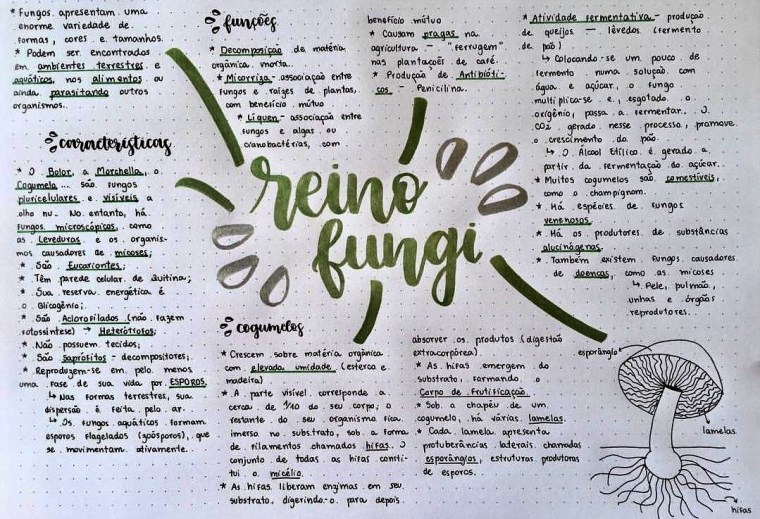 * Fungos apresentam uma
enorme variedade de
formas, cores e tamanhos.
* Podem ser encontrados
em ambientes terrestres e
aquáticos, nos alimentos ou
ainda parasitando outros
organismos.
características
* O Bolor, a Morchella, o
Cogumelo... são fungos
pluricelulares e visíveis a
olho nu. No entanto, há
fungos microscópicos, como
as Leveduras e os organis-
mos causadores de micoses;
* São Eucariontes;
* Têm parede celular de Quitina;
* Sua reserva energética é
o Glicogênio;
* São Aclorofilados (não fazem
fotossíntese) → Heterótrofos;
* Não possuem tecidos;
* São saprófitos - decompositores;
* Reproduzem-se em pelo menos
uma fase de sua vida por ESPOROS.
↳ Nas formas terrestres, sua
dispersão é feita pelo ar.
↳ Os fungos aquáticos formam
esporos flagelados (zoósporos), que
se movimentam ativamente.
funções
* Decomposição de matéria
orgânica morta.
* Micorriza - associação entre
fungos e raízes de plantas,
com benefício mútuo
* Líquen - associação entre
fungos e algas ou
cianobactérias, com
benefício mútuo
* Causam pragas na
agricultura - "ferrugem"
nas plantações de café.
* Produção de Antibióti-
cos - Penicilina.
* Atividade fermentativa - produção
de queijos - lêvedos (fermento
de pão)
↳ Colocando-se um pouco de
fermento numa solução com
água e açúcar, o fungo
multiplica-se e, esgotado o
oxigênio, passa a fermentar. O
CO2 gerado nesse processo, promove
o crescimento do pão.
↳ O Álcool Etílico é gerado a
partir da fermentação do açúcar.
* Muitos cogumelos são comestíveis,
como o champignon.
* Há espécies de fungos
venenosos.
* Há os produtores de substâncias
alucinógenas.
* Também existem fungos causadores
de doenças, como as micoses
↳ Pele, pulmão,
unhas e órgãos
reprodutores.
reino
fungi
cogumelos
* Crescem sobre matéria orgânica
com elevada umidade (esterco e
madeira)
* A parte visível corresponde a
cerca de 1/10 do seu corpo; o
restante do seu organismo fica
imersa no substrato, sob a forma
de filamentos chamados hifas. O
conjunto de todas as hifas consti-
tui o micélio.
* As hifas liberam enzimas em seu
substrato, digerindo-o para depois
absorver os produtos (digestão
extracorpórea).
* As hifas emergem do
substrato, formando o
Corpo de Frutificação.
* Sob a chapéu de um
cogumelo, há várias lamelas.
* Cada lamela apresenta
protuberâncias laterais chamadas
esporângios, estruturas produtoras
de esporos.
esporângio
lamelas
hifas